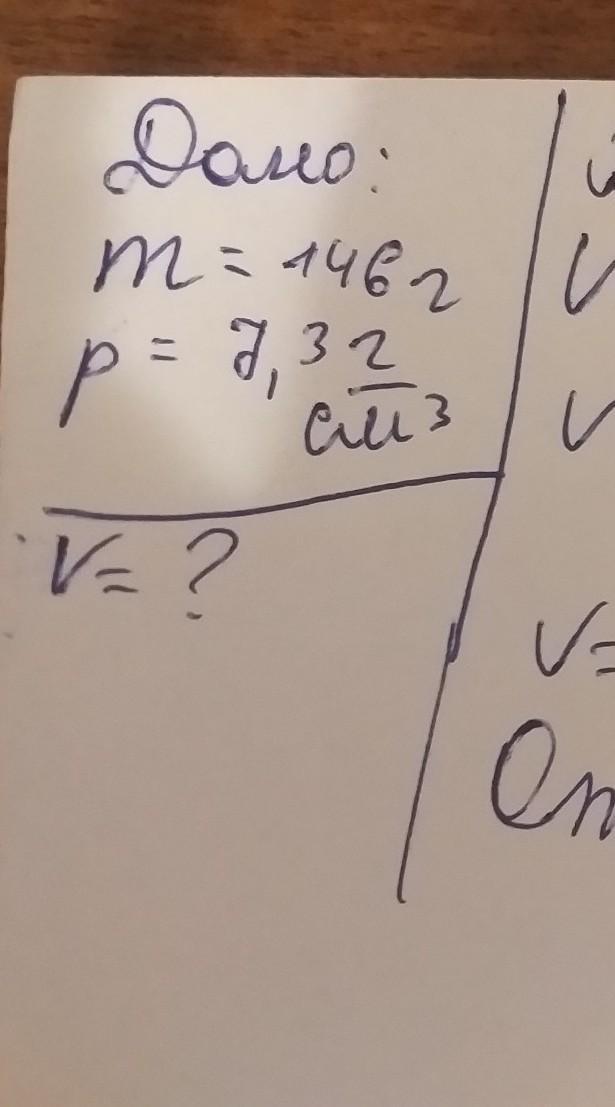 Дано:
m = 146 г
p = 7,3 г
см3
V= ?
V
V
V=